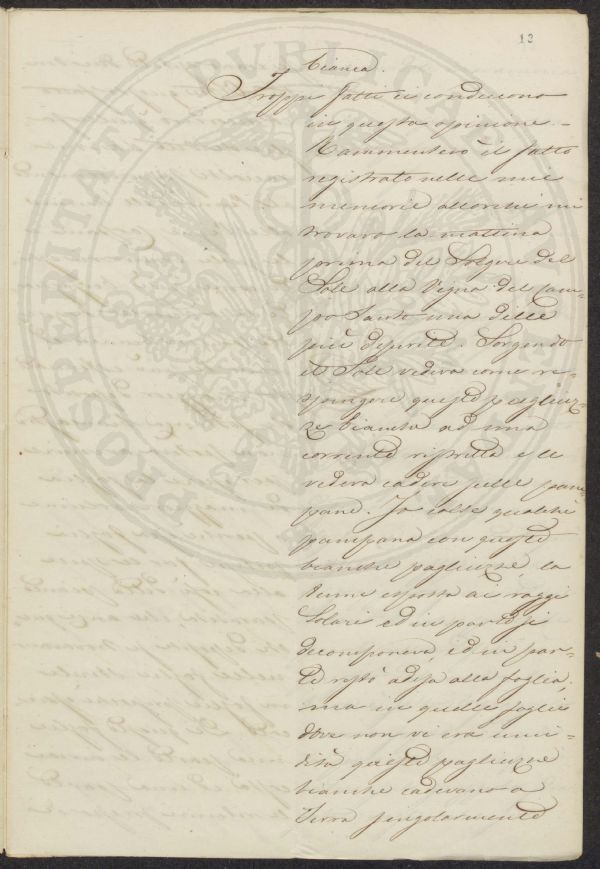 13
bianca.
Troppi fatti ci conducono
in questa opinione. -
Rammenterò il fatto
registrato nelle mie
memorie allorchè mi
trovavo la mattina
prima del Sorgere del
Sole alla Vigna del Cam=
po Santo una delle
più desperite. Sorgendo
il Sole vedeva come re=
spingere queste pagliuz=
ze bianche ad una
corrente ristretta e le
vedeva cadere sulle pam=
pane. Io colse qualche
pampana con queste
bianche pagliuzze, la
tenne esposta ai raggi
Solari ed in parte si
decomponeva, ed in par=
te restò adesa alla foglia;
ma in quelle foglie
dove non vi era umi=
dità queste pagliuzze
bianche cadevano a
Terra singolarmente
PVBLICA
PROSPERITATI